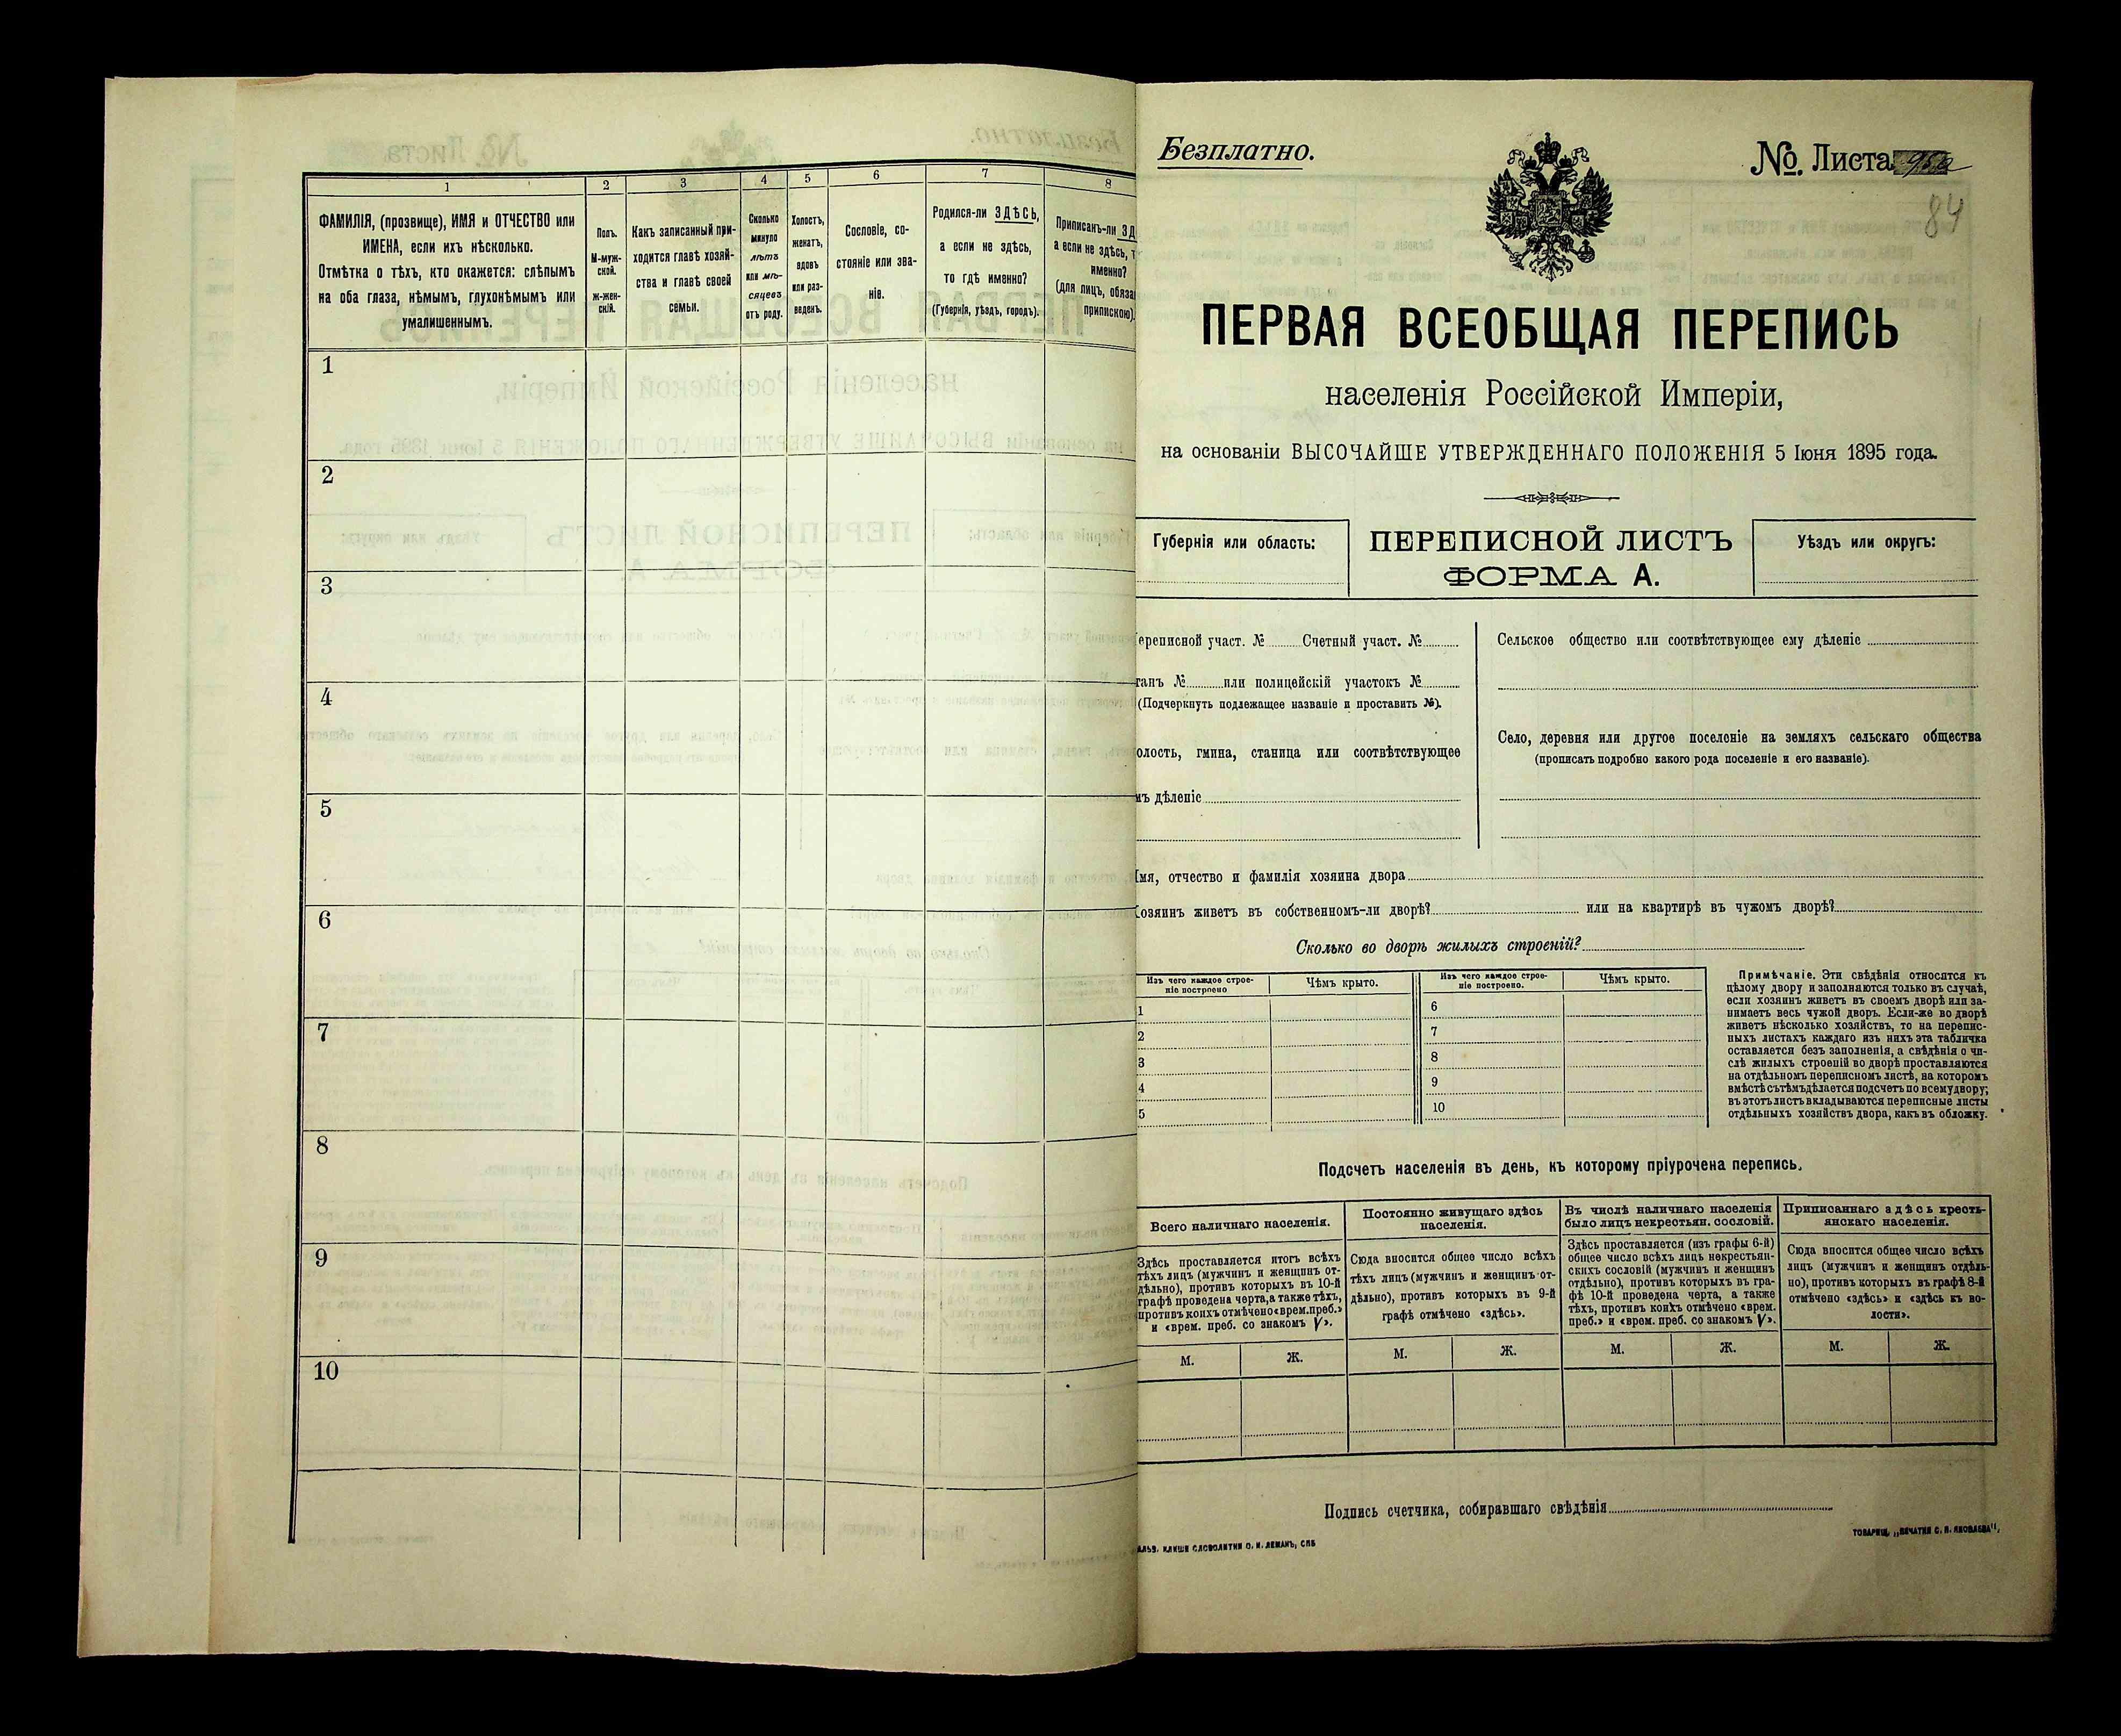 1
2
3
4
5
6
7
8
ФАМИЛІЯ, (прозвище), ИМЯ и ОТЧЕСТВО или
ИМЕНА, если ихъ нѣсколько.
Отмѣтка о тѣхъ, кто окажется: слѣпымъ
на оба глаза, нѣмымъ, глухонѣмымъ или
умалишеннымъ.
Полъ.
М-муж-
ской.
ж-жен-
скій.
Какъ записанный при-
ходится главѣ хозяй-
ства и главѣ своей
семьи.
Сколько
минуло
лѣтъ
или мѣ-
сяцевъ
отъ роду.
Холостъ,
женатъ,
вдовъ
или раз-
веденъ.
Сословіе, со-
стояніе или зва-
ніе.
Родился-ли ЗДѢСЬ,
а если не здѣсь,
то гдѣ именно?
(Губернія, уѣздъ, городъ).
Приписанъ-ли ЗД
а если не здѣсь, т
именно?
(для лицъ, обяза
припискою).
1
2
3
4
5
6
7
8
9
10
Безплатно.
№. Листа
84
ПЕРВАЯ ВСЕОБЩАЯ ПЕРЕПИСЬ
населенія Россійской Имперіи,
на основаніи ВЫСОЧАЙШЕ УТВЕРЖДЕННАГО ПОЛОЖЕНІЯ 5 Іюня 1895 года.
Губернія или область:
ПЕРЕПИСНОЙ ЛИСТЪ
ФОРМА А.
Уѣздъ или округъ:
ереписной участ. № Счетный участ. №
танъ № или полицейскій участокъ №
(Подчеркнуть подлежащее названіе и проставить №).
олость, гмина, станица или соотвѣтствующее
мъ дѣленіе
Сельское общество или соотвѣтствующее ему дѣленіе
Село, деревня или другое поселеніе на земляхъ сельскаго общества
(прописать подробно какого рода поселеніе и его названіе).
Имя, отчество и фамилія хозяина двора
Хозяинъ живетъ въ собственномъ-ли дворѣ? или на квартирѣ въ чужомъ дворѣ?
Сколько во дворѣ жилыхъ строеній?
Изъ чего каждое строе-
ніе построено
Чѣмъ крыто.
Изъ чего каждое строе-
ніе построено.
Чѣмъ крыто.
1
2
3
4
5
6
7
8
9
10
Примѣчаніе. Эти свѣдѣнія относятся къ
цѣлому двору и заполняются только въ случаѣ,
если хозяинъ живетъ въ своемъ дворѣ или за-
нимаетъ весь чужой дворъ. Если-же во дворѣ
живетъ нѣсколько хозяйствъ, то на перепис-
ныхъ листахъ каждаго изъ нихъ эта табличка
оставляется безъ заполненія, а свѣдѣнія о чи-
слѣ жилыхъ строеній во дворѣ проставляются
на отдѣльномъ переписномъ листѣ, на которомъ
вмѣстѣ съ тѣмъ дѣлается подсчетъ по всему двору;
въ этотъ листъ вкладываются переписные листы
отдѣльныхъ хозяйствъ двора, какъ въ обложку.
Подсчетъ населенія въ день, къ которому пріурочена перепись.
Всего наличнаго населенія.
Здѣсь проставляется итогъ всѣхъ
тѣхъ лицъ (мужчинъ и женщинъ от-
дѣльно), противъ которыхъ въ 10-й
графѣ проведена черта, а также тѣхъ,
противъ коихъ отмѣчено «врем. преб.»
и «врем. преб. со знакомъ V».
Постоянно живущаго здѣсь
населенія.
Сюда вносится общее число всѣхъ
тѣхъ лицъ (мужчинъ и женщинъ от-
дѣльно), противъ которыхъ въ 9-й
графѣ отмѣчено «здѣсь».
Въ числѣ наличнаго населенія
было лицъ некрестьян. сословій.
Здѣсь проставляется (изъ графы 6-й)
общее число всѣхъ лицъ некрестьян-
скихъ сословій (мужчинъ и женщинъ
отдѣльно), противъ которыхъ въ гра-
фѣ 10-й проведена черта, а также
тѣхъ, противъ коихъ отмѣчено «врем.
преб.» и «врем. преб. со знакомъ V».
Приписаннаго здѣсь кресть-
янскаго населенія.
Сюда вносится общее число всѣхъ
лицъ (мужчинъ и женщинъ отдѣль-
но), противъ которыхъ въ графѣ 8-й
отмѣчено «здѣсь» и «здѣсь къ во-
лости».
М. Ж. М. Ж. М. Ж. М. Ж.
Подпись счетчика, собиравшаго свѣдѣнія
АЛЬВ. КЛИШЕ СЛОВОЛИТНИ О. И. ЛЕМАНЪ, СПБ
ТОВАРИЩ. „ПЕЧАТНЯ С. П. ЯКОВЛЕВА“,